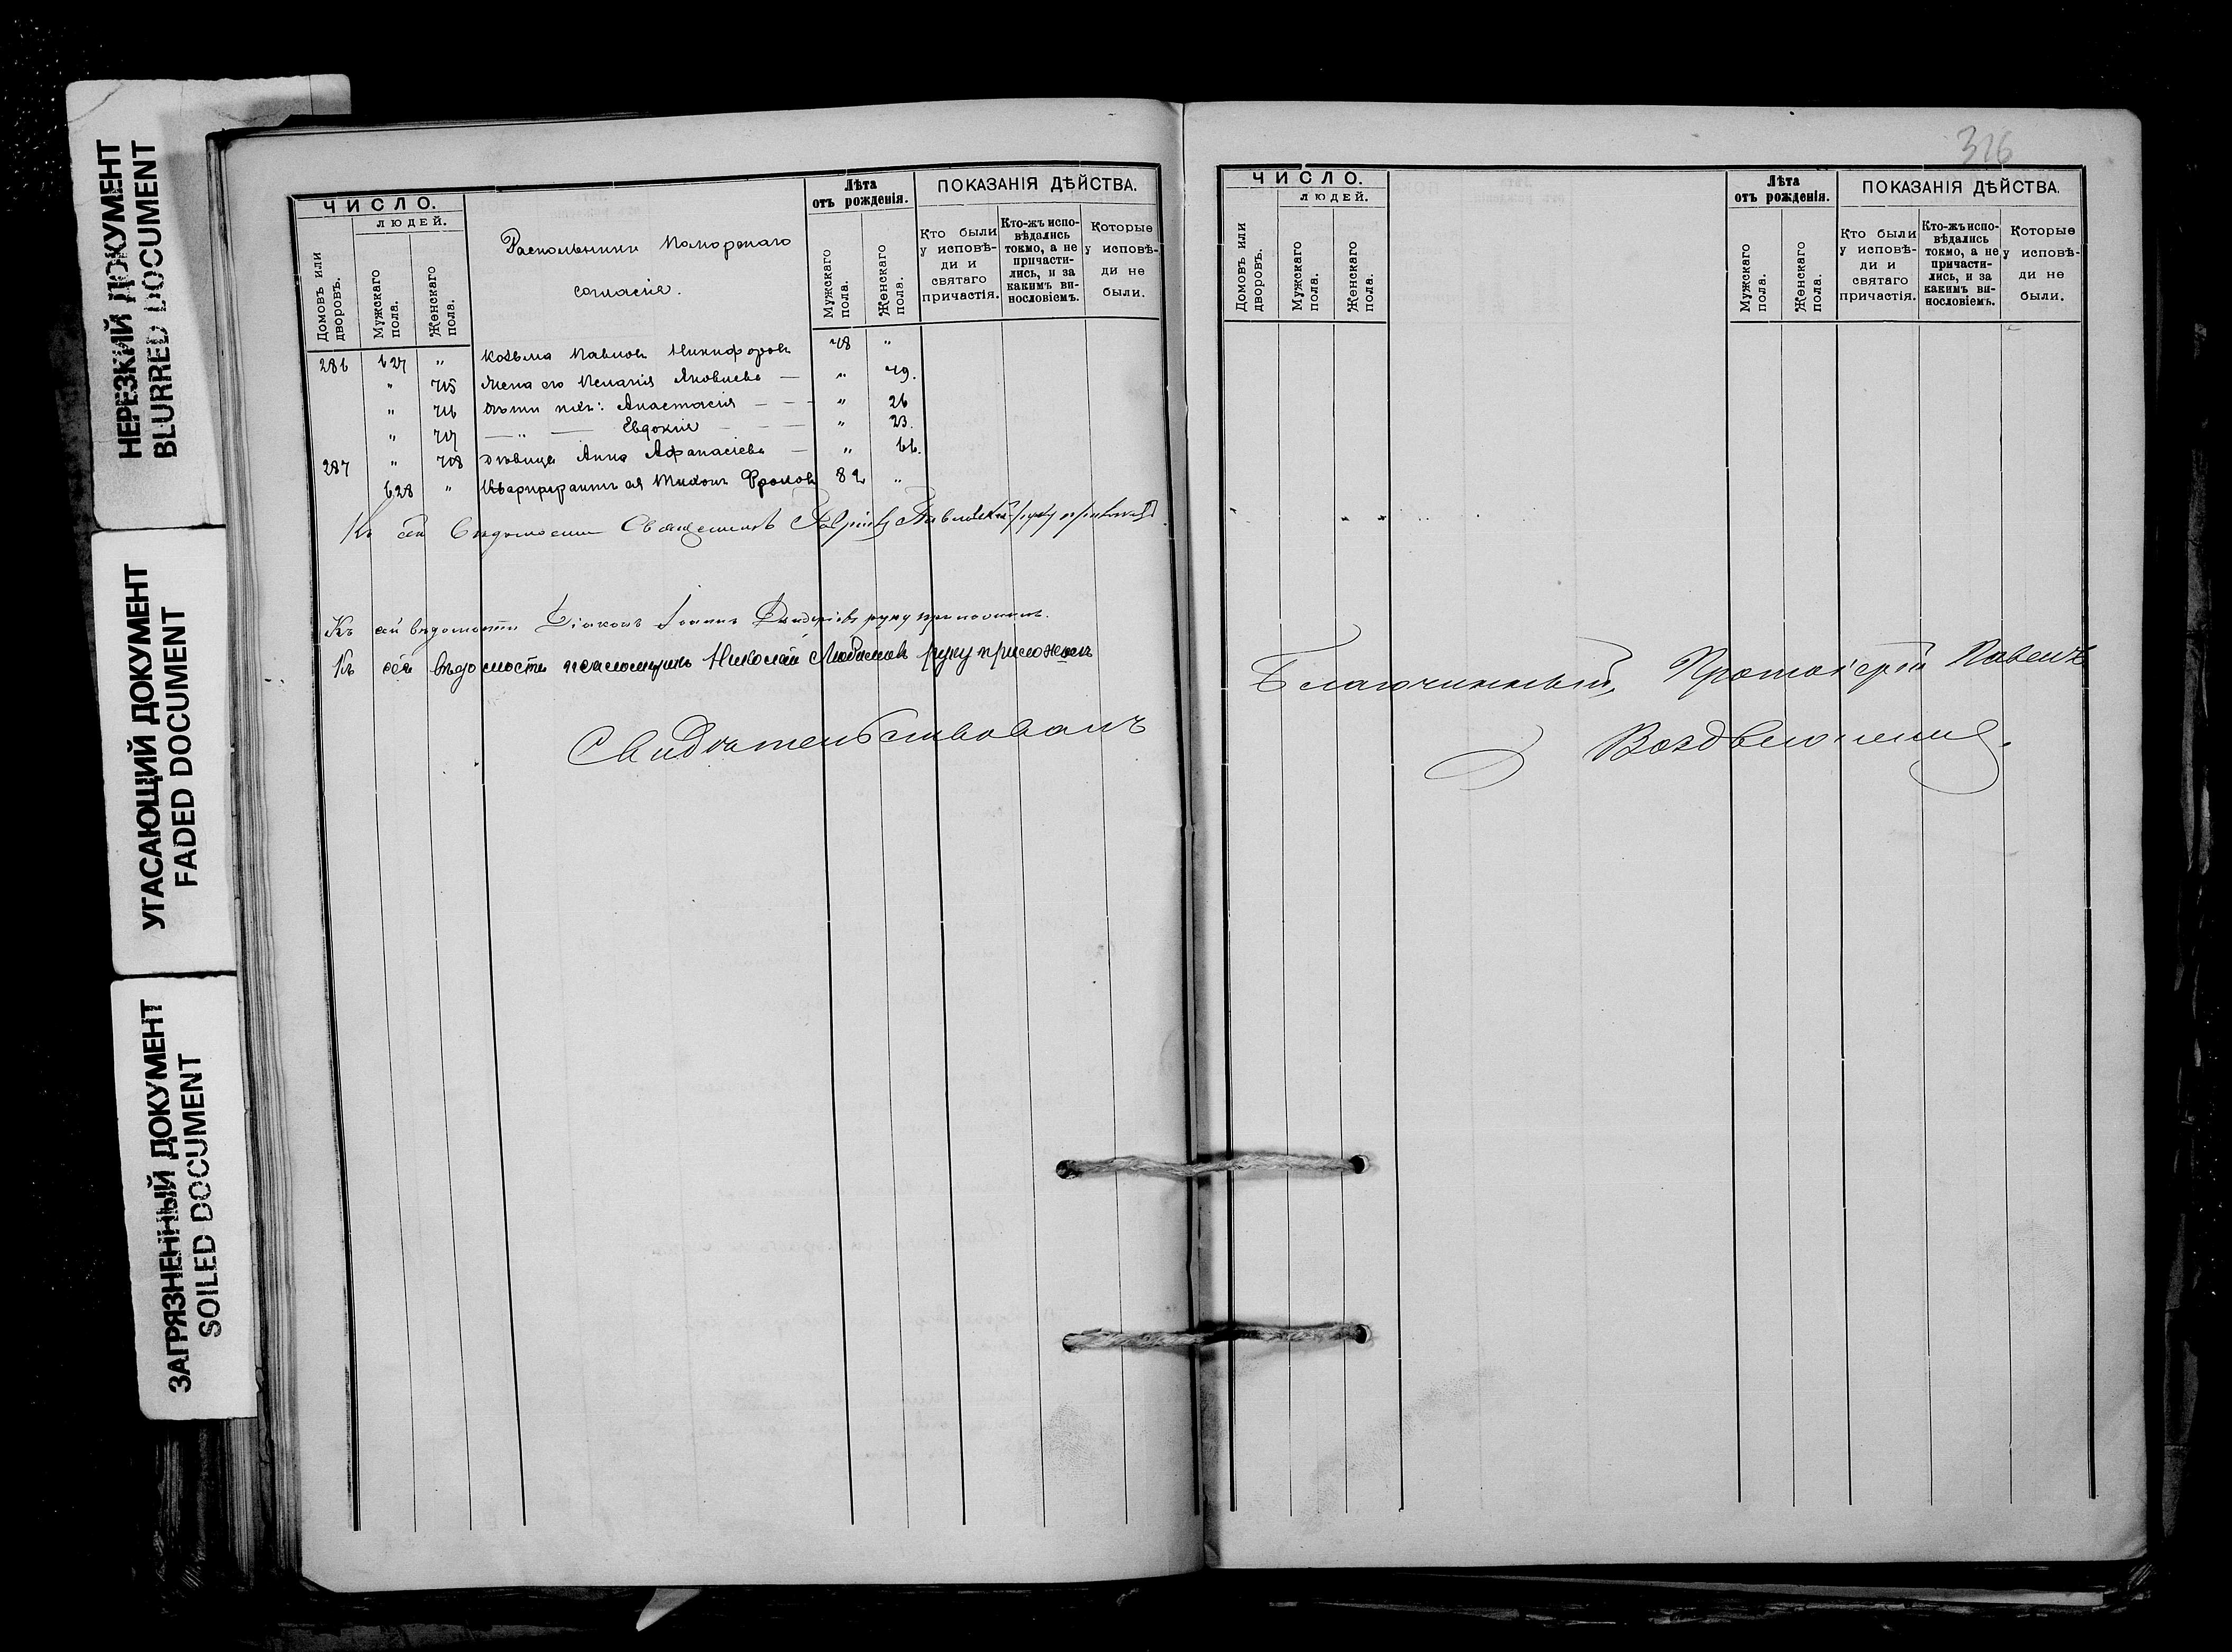 НЕРЕЗКИЙ ДОКУМЕНТ
BLURRED DOCUMENT
УГАСАЮЩИЙ ДОКУМЕНТ
FADED DOCUMENT
ЗАГРЯЗНЕННЫЙ ДОКУМЕНТ
SOILED DOCUMENT
ЧИСЛО.
ЛЮДЕЙ.
Домовъ или дворовъ.
Мужскаго пола.
Женскаго пола.
Раскольники Поморскаго
согласія.
Лѣта
отъ рожденія.
Мужскаго пола.
Женскаго пола.
ПОКАЗАНІЯ ДѢЙСТВА.
Кто были у исповѣ-ди и святаго причастія.
Кто-жъ испо-вѣдались токмо, а не причасти-лись, и за какимъ ви-нословіемъ.
Которые у исповѣ-ди не были.
286 627 " Козьма Павловъ Никифоровъ 48 "
" 715 Жена его Пелагія Яковлева — " 49.
" 716 дѣти ихъ: Анастасія — — " 26
" 717 — " — Евдокія — — — " 23.
287 " 718 дѣвица Анна Афанасіева — " 66.
628 " Квартирантъ ея Тихонъ Фроловъ 82 "
Къ сей вѣдомости Священникъ
Къ сей вѣдомости Діаконъ Іоаннъ руку приложилъ.
Къ сей вѣдомости псаломщикъ Николай Любимовъ руку приложилъ
Свидѣтельствовалъ
326
ЧИСЛО.
ЛЮДЕЙ.
Домовъ или дворовъ.
Мужскаго пола.
Женскаго пола.
Лѣта
отъ рожденія.
Мужскаго пола.
Женскаго пола.
ПОКАЗАНІЯ ДѢЙСТВА.
Кто были у исповѣ-ди и святаго причастія.
Кто-жъ испо-вѣдались токмо, а не причасти-лись, и за какимъ ви-нословіемъ.
Которые у исповѣ-ди не были.
Благочинный, Протоіерей Павелъ